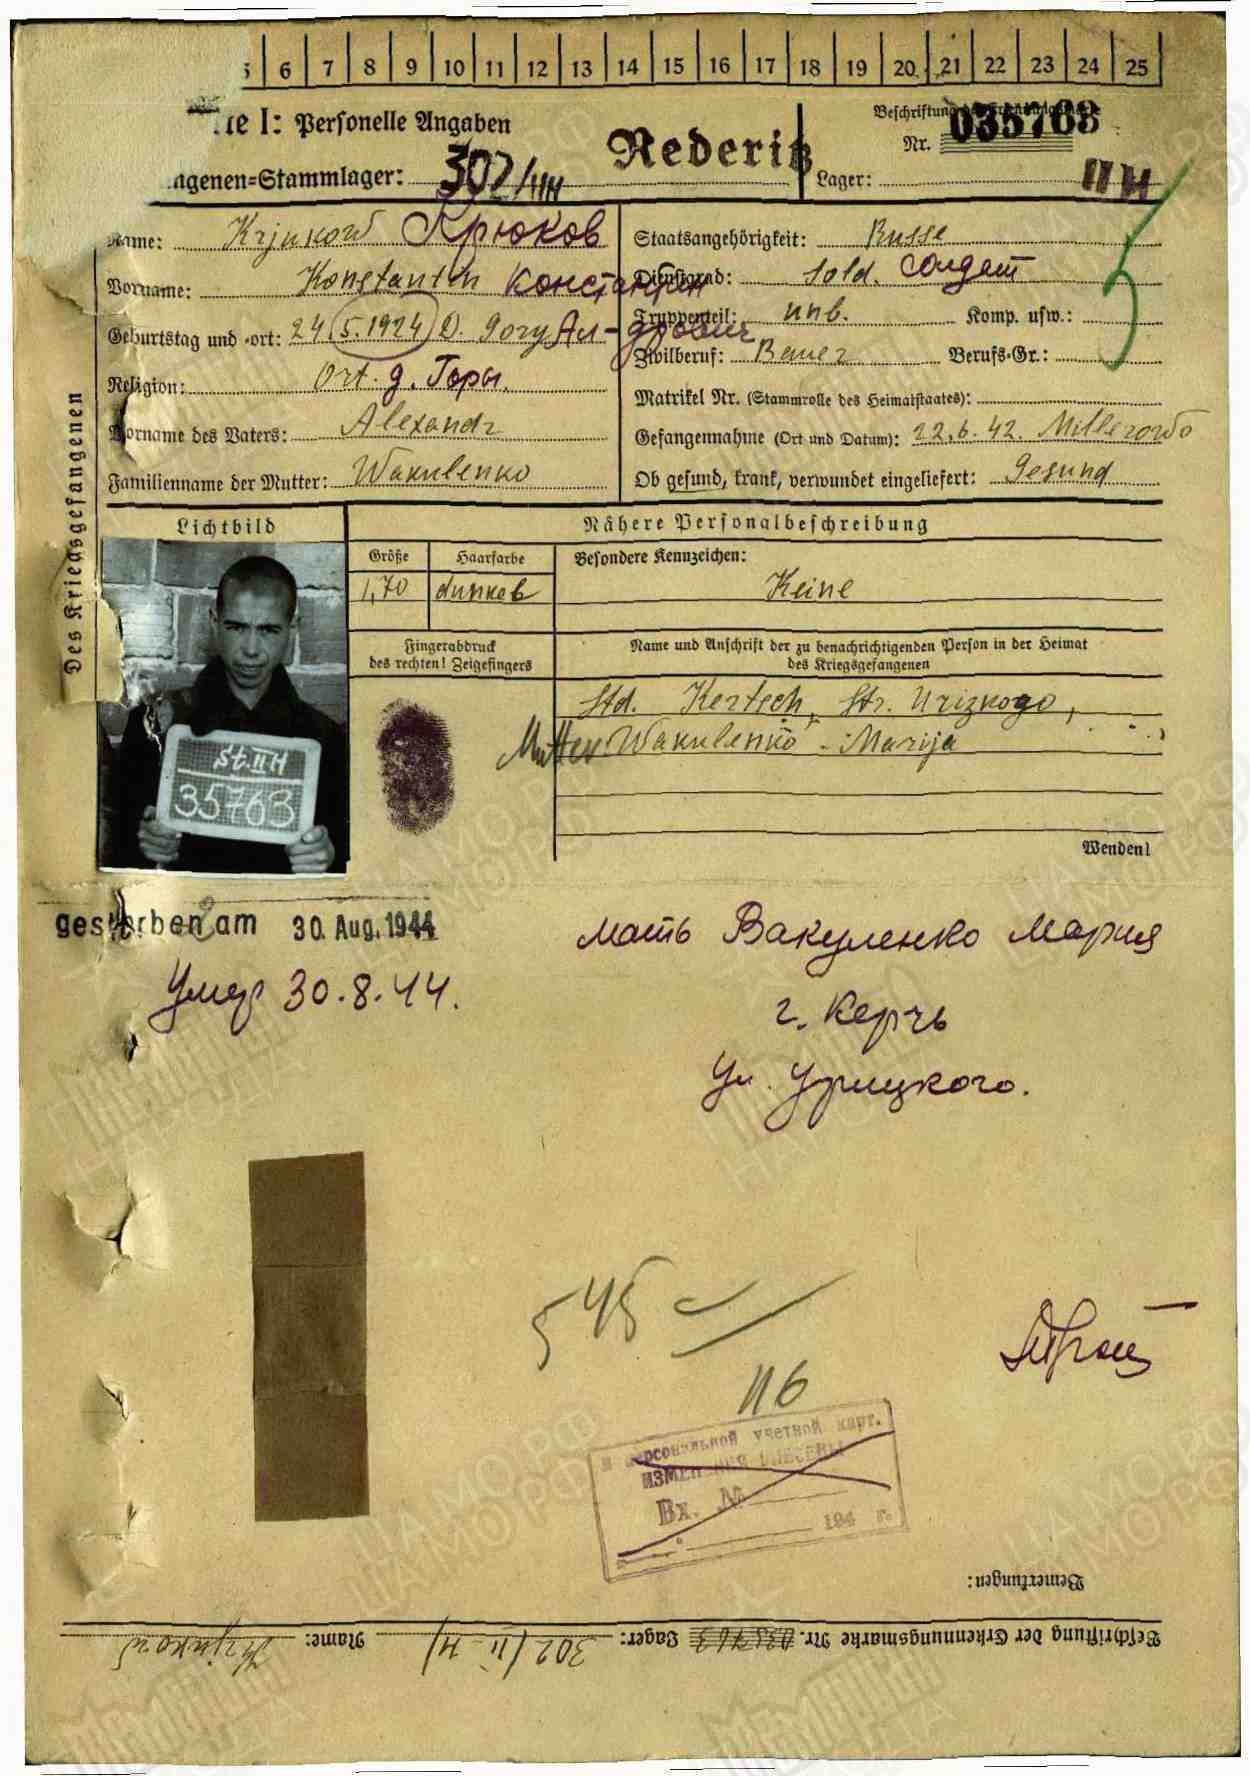 5 6 7 8 9 10 11 12 13 14 15 16 17 18 19 20 21 22 23 24 25
I: Personelle Angaben
Beschriftung der Erkennungsmarke
Nr. 035763
Rederitz
Stammlager: 302/IIH
Lager: IIH
Name: Krjukow Крюков
Staatsangehörigkeit: Russe
Vorname: Konstantin Константин
Dienstgrad: Sold. солдат
Ал-дрович
Truppenteil: unb. Komp. usw.:
Geburtstag und -ort: 24.5.1924 D. Gory
Zivilberuf: Bauer Berufs-Gr.:
Religion: Ort. д. Горы.
Matrikel Nr. (Stammrolle des Heimatstaates):
Vorname des Vaters: Alexandr
Gefangennahme (Ort und Datum): 22.6.42. Millerowo
Familienname der Mutter: Wakulenko
Ob gesund, krank, verwundet eingeliefert: Gesund
Des Kriegsgefangenen
Lichtbild
Nähere Personalbeschreibung
Größe Haarfarbe Besondere Kennzeichen:
1,70 dunkel Keine
Fingerabdruck
des rechten! Zeigefingers
Name und Anschrift der zu benachrichtigenden Person in der Heimat
des Kriegsgefangenen
Std. Kertsch, Str. Urizkogo,
Mutter Wakulenko - Marija
St. IIH
35763
Wenden!
gestorben am 30. Aug. 1944
Умер 30.8.44.
мать Вакуленко Мария
г. Керчь
ул. Урицкого.
545
116
В персональной учетной карт.
ИЗМЕНЕНИЯ ВНЕСЕНЫ
Вх. №
194 г.
Bemerkungen:
Beschriftung der Erkennungsmarke Nr. 035763 Lager: 302/IIH Name: Krjukow
ЦАМО РФ
Мемориал